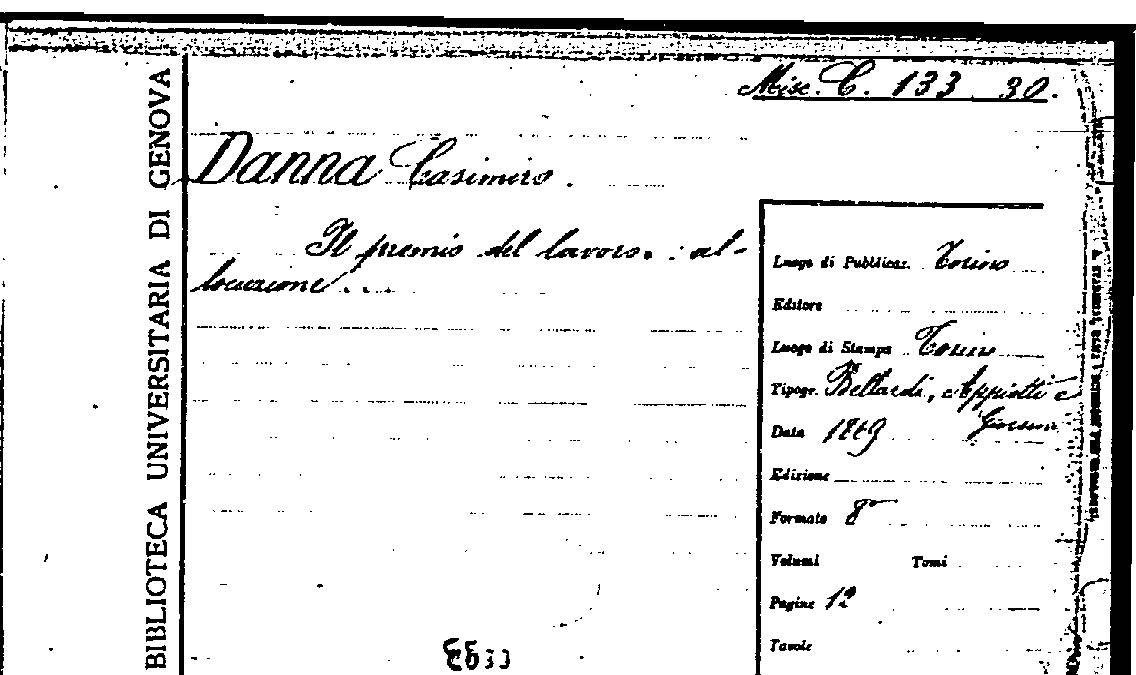 Misc. C. 133 30.
BIBLIOTECA UNIVERSITARIA DI GENOVA
Danna Casimiro.
Il premio del lavoro. : al-
locuzione...
Luogo di Pubblicaz. Torino
Editore
Luogo di Stampa Torino
Tipogr. Bellardi, Appiotti e
Giorsini
Data 1869
Edizione
Formato 8°
Volumi Tomi
Pagine 12
Tavole